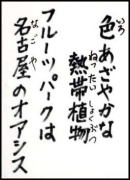 色あざやかな
熱帯植物
フルーツパークは
名古屋のオアシス
いろ
ねったいしょくぶつ
なごや